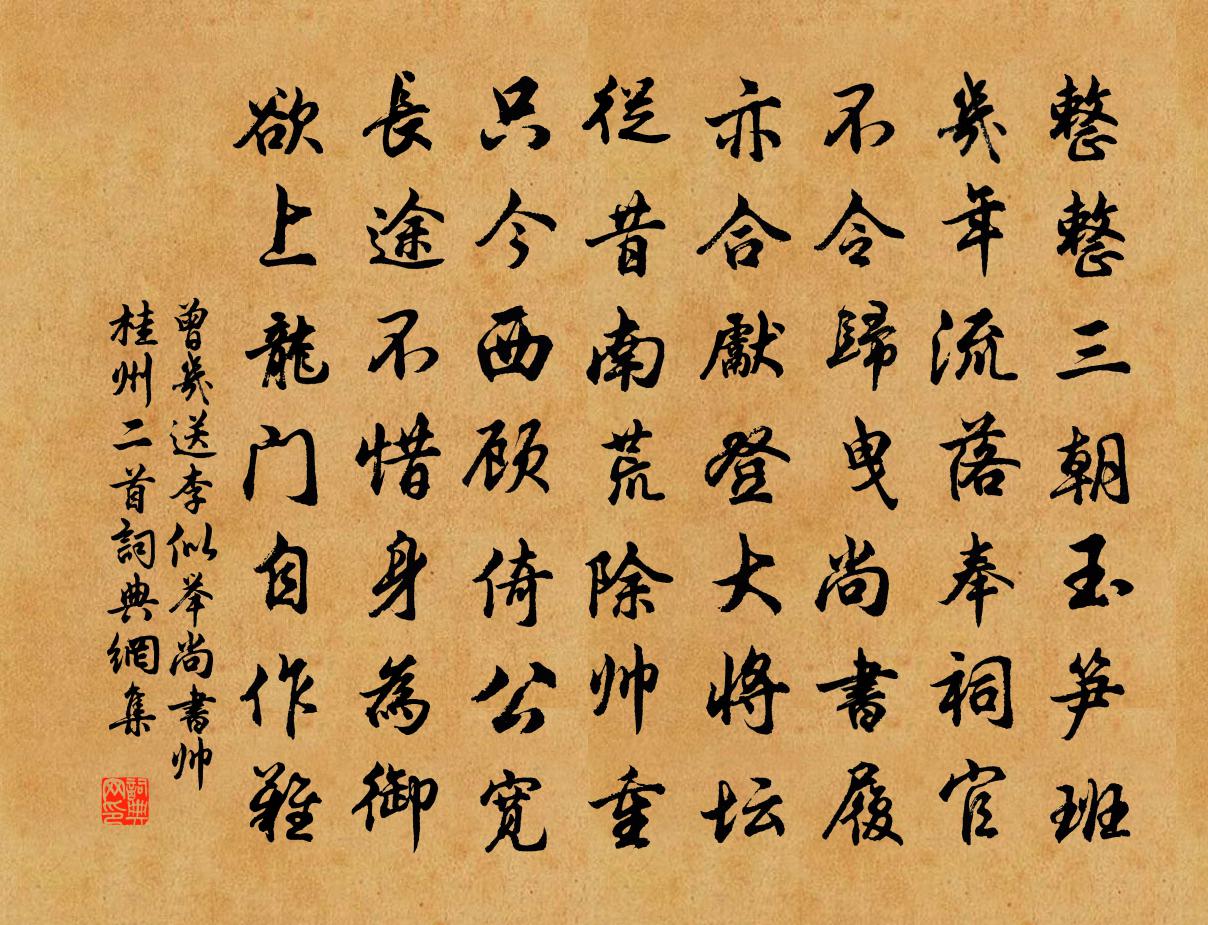 整整三朝玉笋班
幾年流落奉祠官
不令歸曳尚書履
亦合獻登大將坛
從昔南荒除帅重
只今西顾倚公寛
長途不惜身為御
欲上龍门自作難
曾幾送李似举尚書帅
桂州二首詞典網集
詞典网印